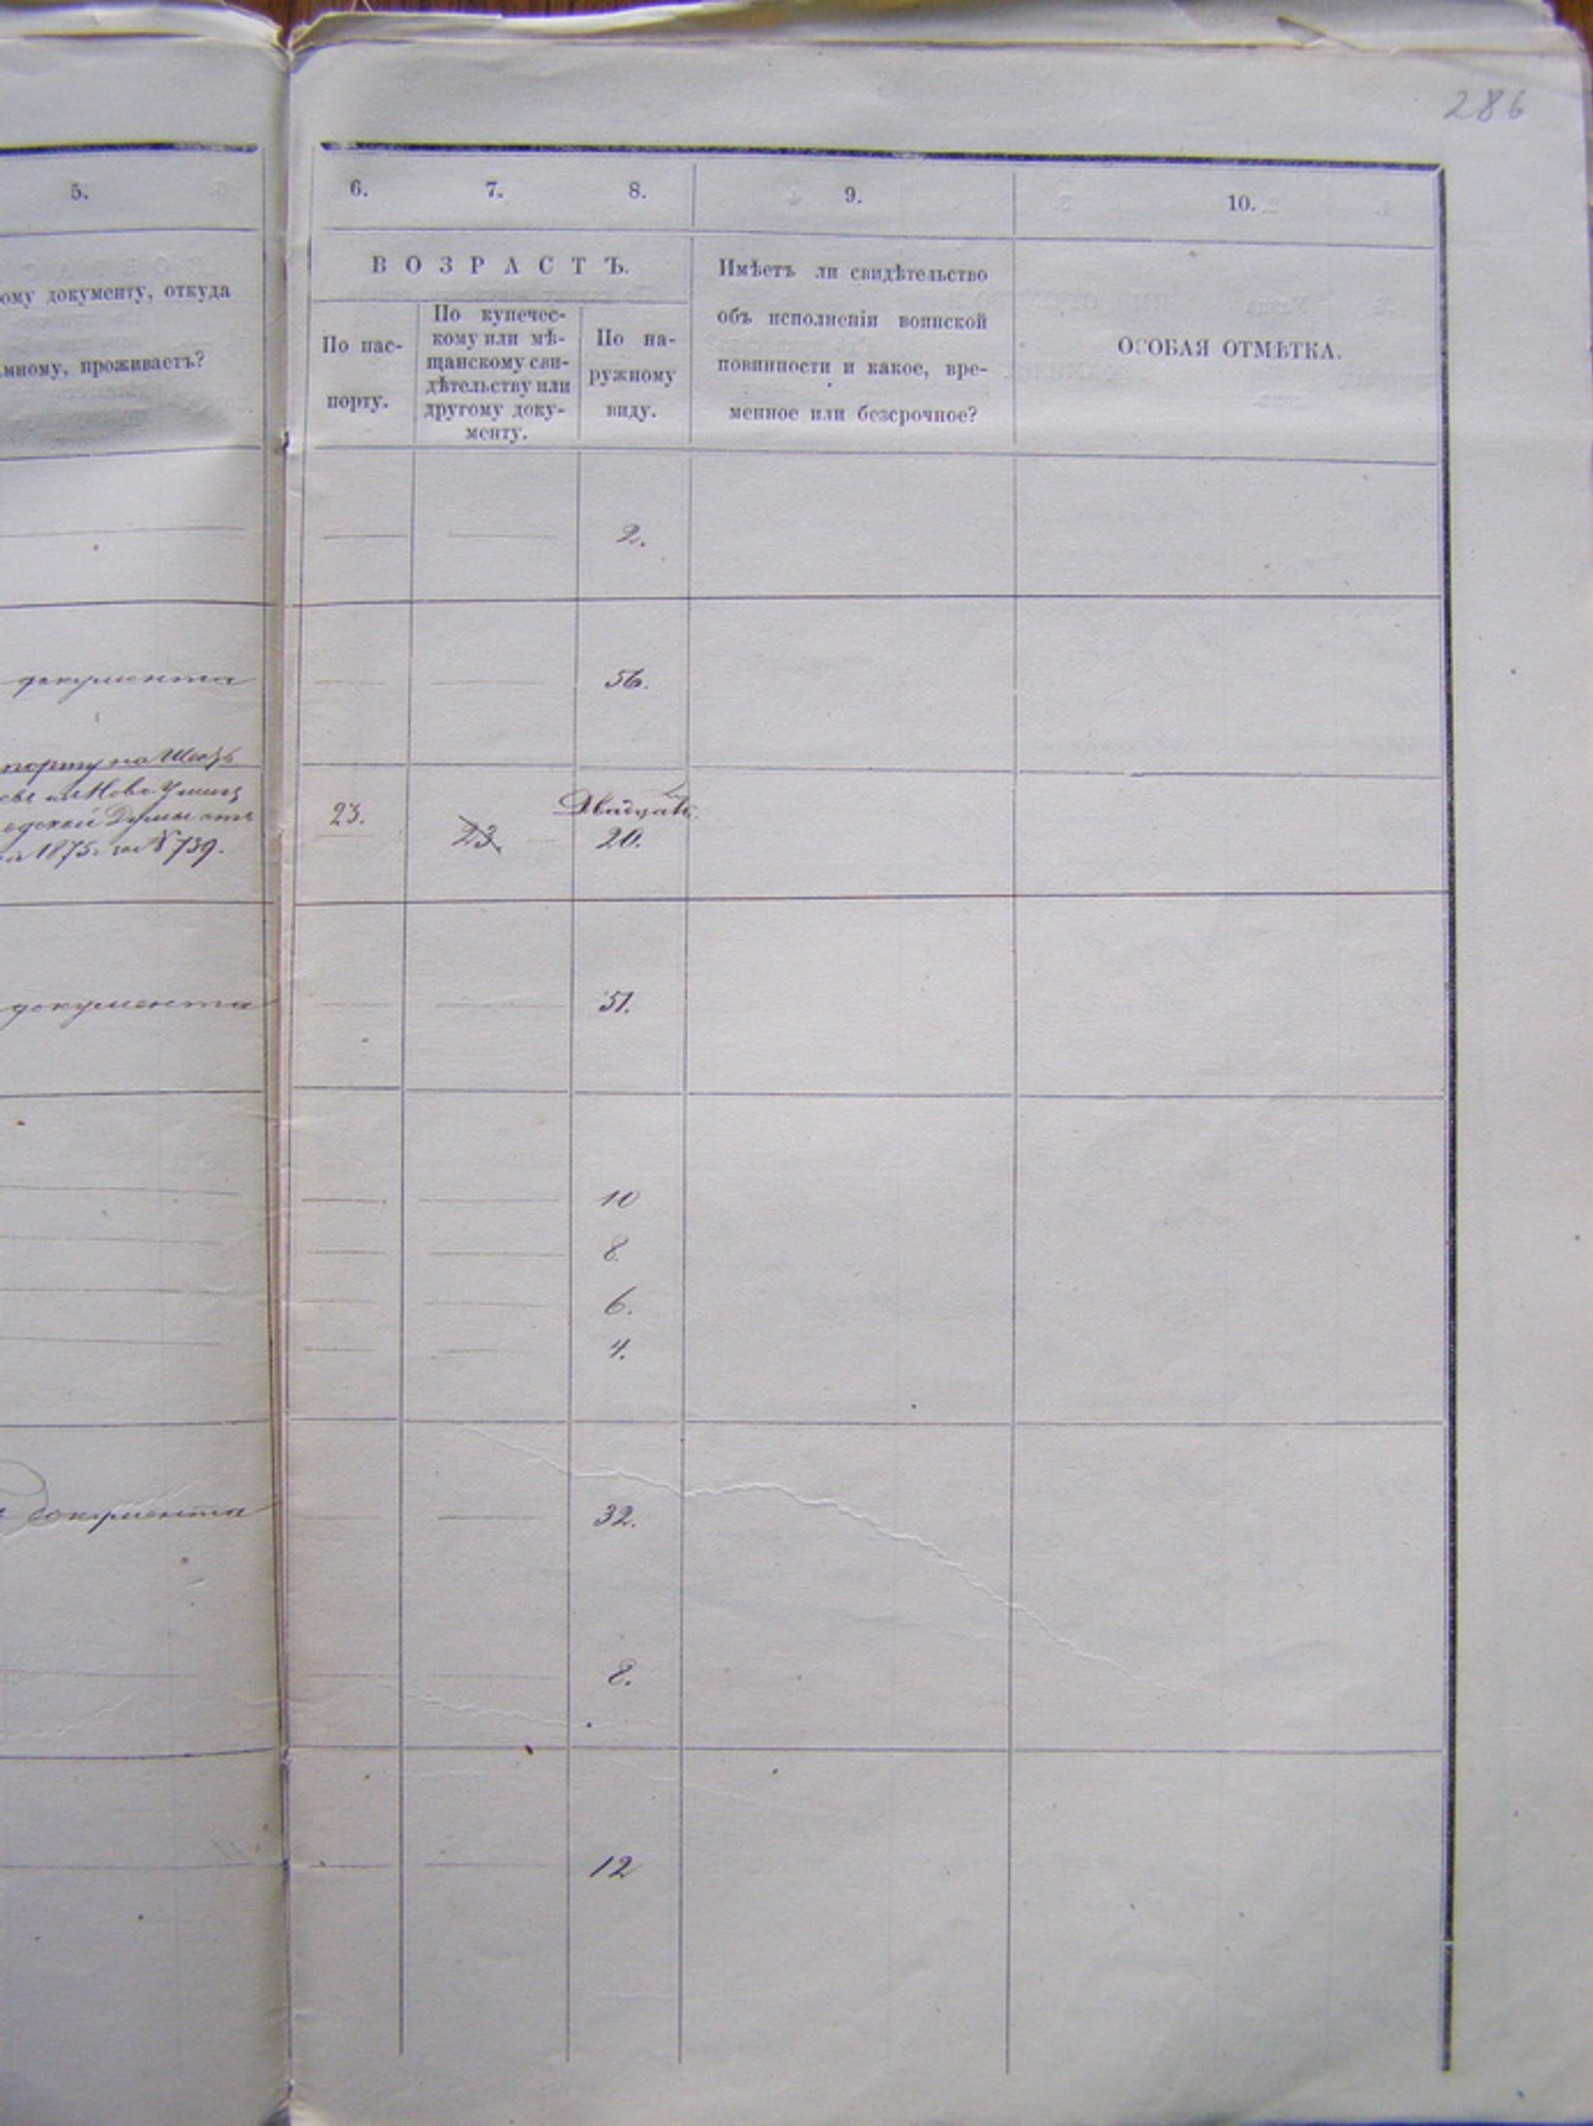 286
5. 6. 7. 8. 9. 10.
ому документу, откуда
нному, проживаетъ?
ВОЗРАСТЪ.
По пас-
порту.
По купечес-
кому или мѣ-
щанскому сви-
дѣтельству или
другому доку-
менту.
По на-
ружному
виду.
Имѣетъ ли свидѣтельство
объ исполненіи воинской
повинности и какое, вре-
менное или безсрочное?
ОСОБАЯ ОТМѢТКА.
2.
документа 56.
порту на
Ново
одской Думы отъ
1875 за № 739.
23. 23. Двадцать
20.
документа 51.
10
8.
6.
4.
документа 32.
8.
12